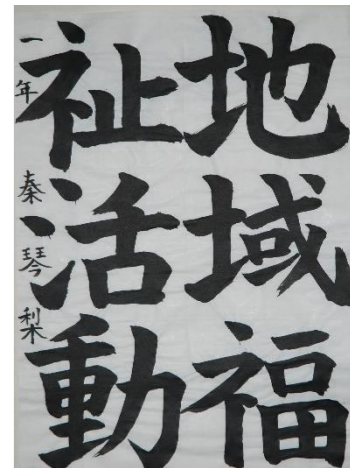 地域福
祉活動
一年 秦琴梨